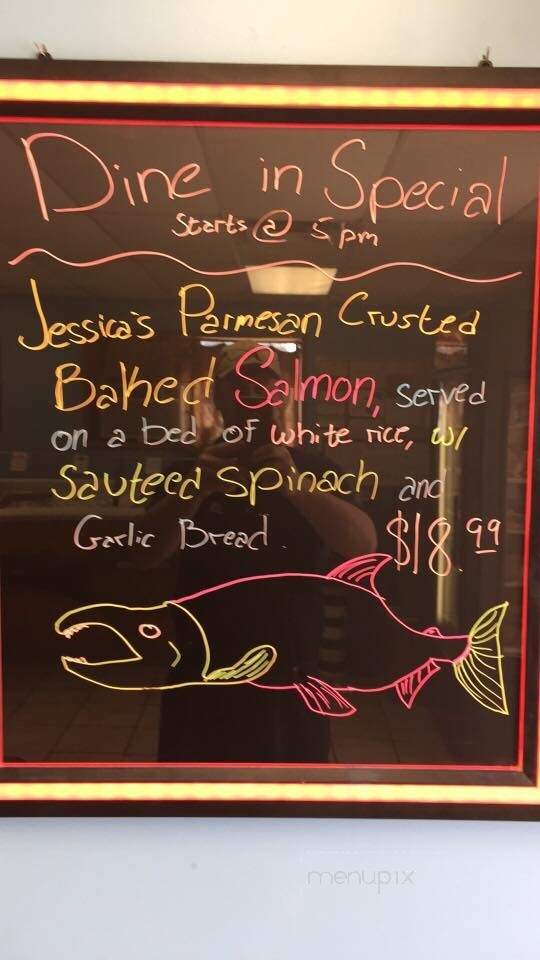 Dine in Special
Starts @ 5 pm
Jessica's Parmesan Crusted
Baked Salmon, served
on a bed of white rice, w/
Sauteed Spinach and
Garlic Bread. $18.99
menupix